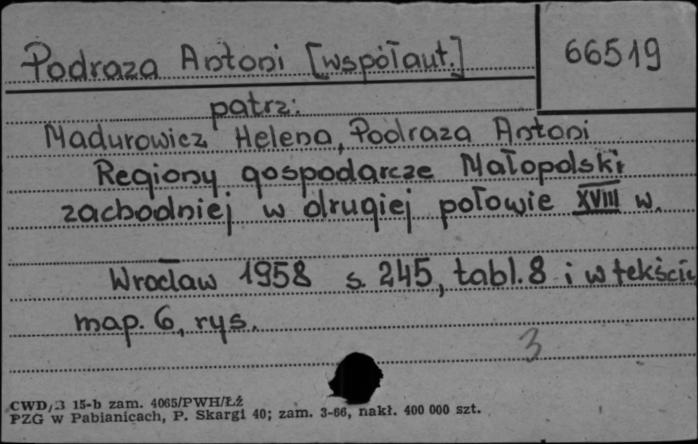 Podraza Antoni [współaut.]
66519
patrz:
Madurowicz Helena, Podraza Antoni
Regiony gospodarcze Małopolski
zachodniej w drugiej połowie XVIII w.
Wrocław 1958 s. 245, tabl. 8 i w tekście
map. 6, rys.
3
CWD/3 15-b zam. 4065/PWH/Łź
PZG w Pabianicach, P. Skargi 40; zam. 3-66, nakł. 400 000 szt.